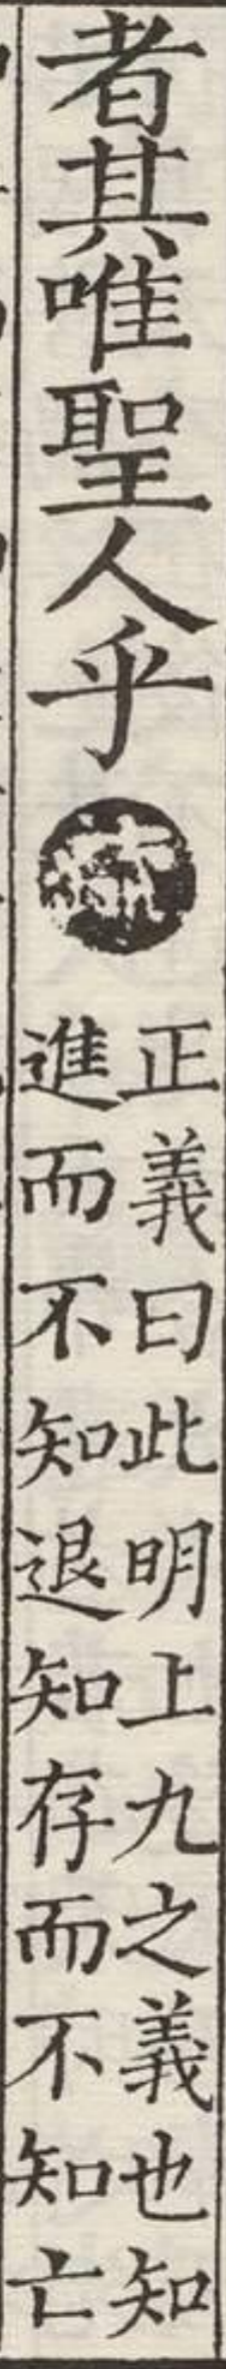 者其唯聖人乎疏
正義曰此明上九之義也知
進而不知退知存而不知亡